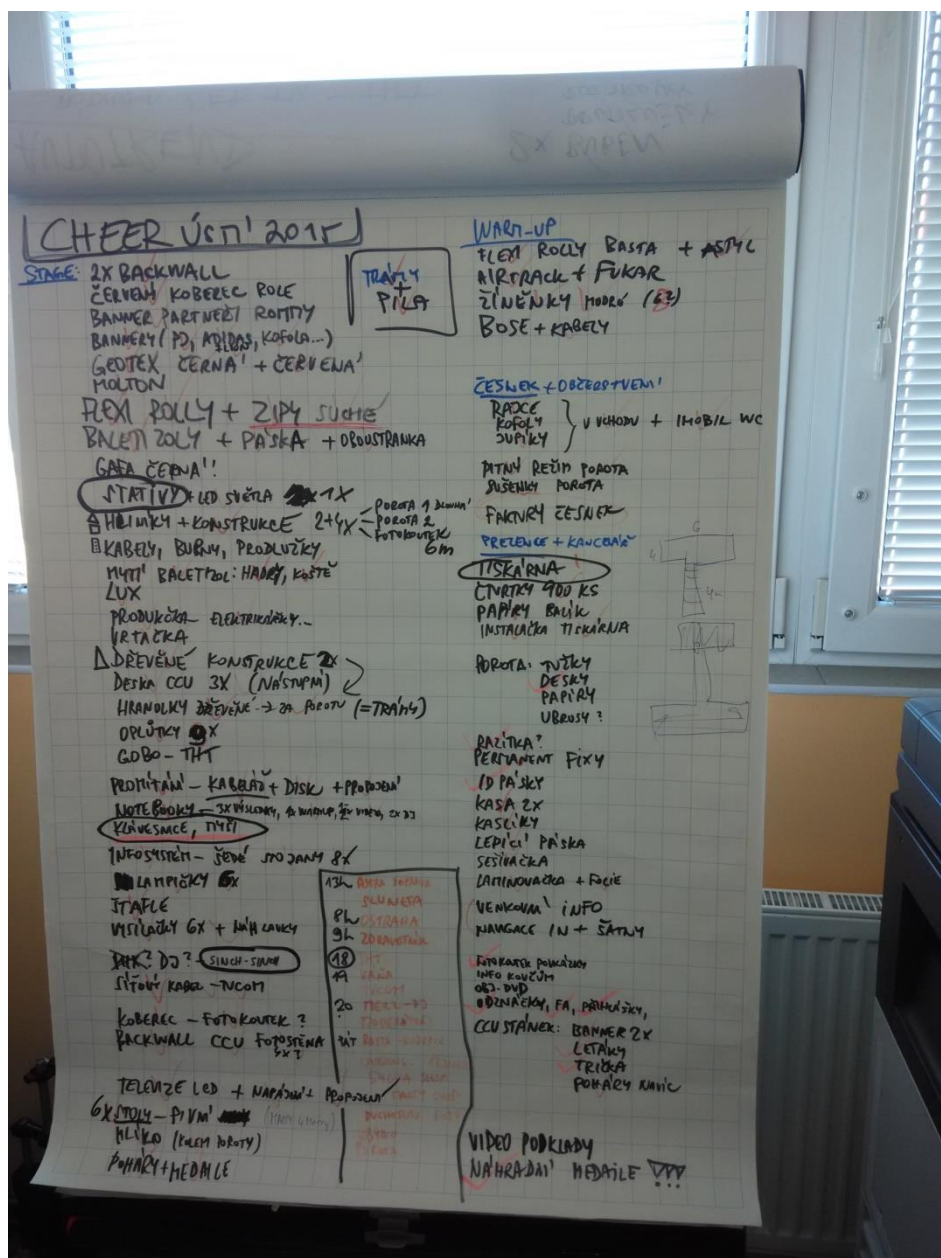 CHEER ÚSTÍ 2015
STAGE: 2X BACKWALL
ČERVENÝ KOBEREC ROLE
BANNER PARTNEŘI ROMMY
BANNERY (PD, ADIDAS, KOFOLA...)
GEOTEX ČERNÁ + ČERVENÁ
MOLTON
FLEXI ROLLY + ZIPY SUCHÉ
BALETIZOLY + PÁSKA + OBOUSTRANKA
GAFA ČERNÁ!!
STATIVY + LED SVĚTLA 1X
HLINÍKY + KONSTRUKCE 2+4X
POROTA 1 DLOUHÁ
POROTA 2
FOTOKOUTEK
6m
KABELY, BUBNY, PRODLUŽKY
MYTÍ BALETIZOL: HADRY, KOŠTĚ
LUX
PRODUKČKA - ELEKTRIKÁŘKY...
VRTAČKA
DŘEVĚNÉ KONSTRUKCE 2X
DESKA CCU 3X (NÁSTUPNÍ)
HRANOLKY DŘEVĚNÉ → ZA POROTU (=TRÁMY)
OPLŮTKY 9X
GOBO - THT
PROMÍTÁNÍ - KABELÁŽ + DISK + PROPOJENÍ
NOTEBOOKY - 3X VÝSLEDKY, 1X WARMUP, VIDEO, 2X DJ
KLÁVESNICE, MYŠI
INFOSYSTÉM - ŠEDÉ STOJANY 8X
LAMPIČKY 6X
ŠTAFLE
VYSÍLAČKY 6X + NÁHLAVKY
DJ? SINCH-SINCH
SÍŤOVÝ KABEL - TVCOM
KOBEREC - FOTOKOUTEK?
BACKWALL CCU FOTOSTĚNA
TELEVIZE LED + NAPÁJENÍ + PROPOJENÍ
6X STOLY - PIVNÍ
MLÍKO (KOLEM POROTY)
POHÁRY + MEDAILE
TRÁMY
+
PILA
13h
SLUNETA
8h OSTRAHA
9h ZDRAVOTNÍK
18
19
TVCOM
20
WARM-UP
FLEXI ROLLY BASTA + ASTYL
AIRTRACK + FUKAR
ŽÍNĚNKY MODRÉ (6?)
BOSE + KABELY
ČESNEK + OBČERSTVENÍ
RAJCE
KOFOLY
JUPÍKY
U VCHODU + IMOBIL WC
PITNÝ REŽIM POROTA
SUŠENKY POROTA
FAKTURY ČESNEK
PREZENCE + KANCELÁŘ
TISKÁRNA
ČTVRTKY 900 KS
PAPÍRY BALÍK
INSTALAČKA TISKÁRNA
POROTA: TUŽKY
DESKY
PAPÍRY
UBRUSY?
RAZÍTKA?
PERMANENT FIXY
ID PÁSKY
KASA 2X
KASLÍKY
LEPÍCÍ PÁSKA
SEŠÍVAČKA
LAMINOVAČKA + FOLIE
VENKOVNÍ INFO
NAVIGACE IN + ŠATNY
FOTOKOUTEK POUKÁZKY
INFO KOUČŮM
OBJ. DVD
ODZNÁČKY, FA, PŘIHLÁŠKY,
CCU STÁNEK: BANNER 2X
LETÁKY
TRIČKA
POHÁRY NAVÍC
VIDEO PODKLADY
NÁHRADNÍ MEDAILE !!!